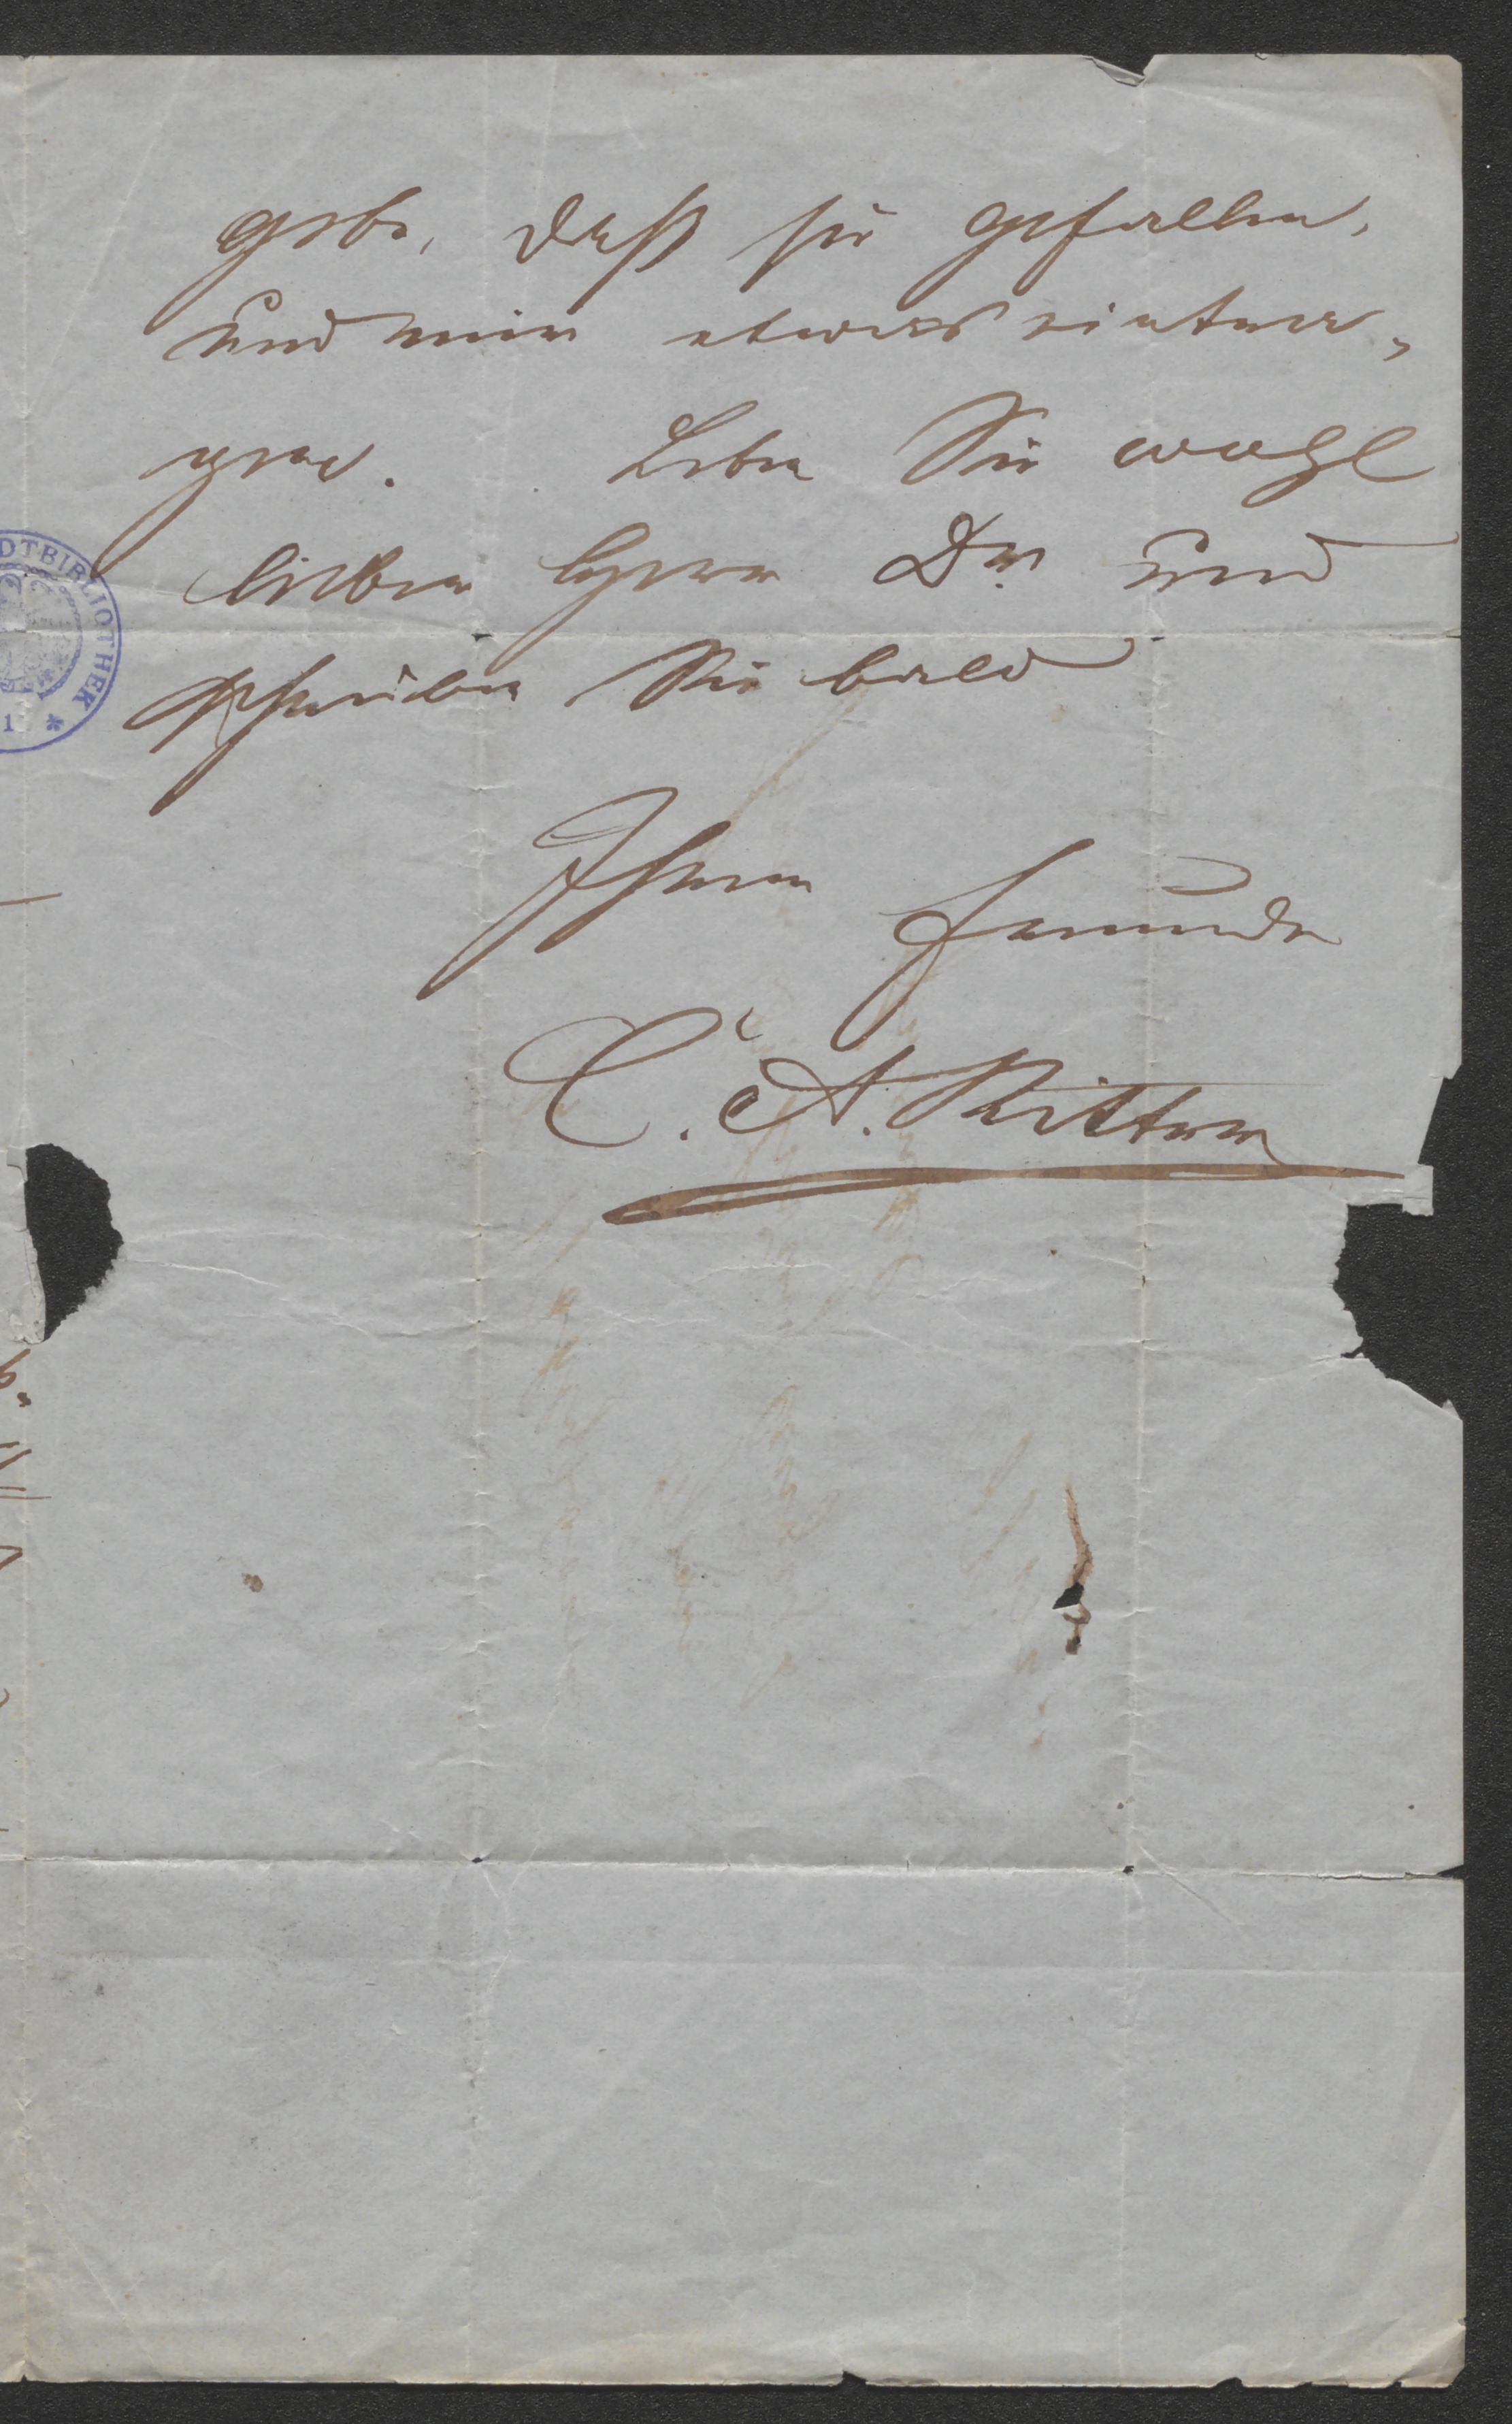 gebe, daß sie gefallen,
und mir etwas eintra-
gen. Leben Sie wohl
lieber Herr Dr. und
schreiben Sie bald
Ihrem Freunde
C. A. Ritter
DTBIBLIOTHEK *
1